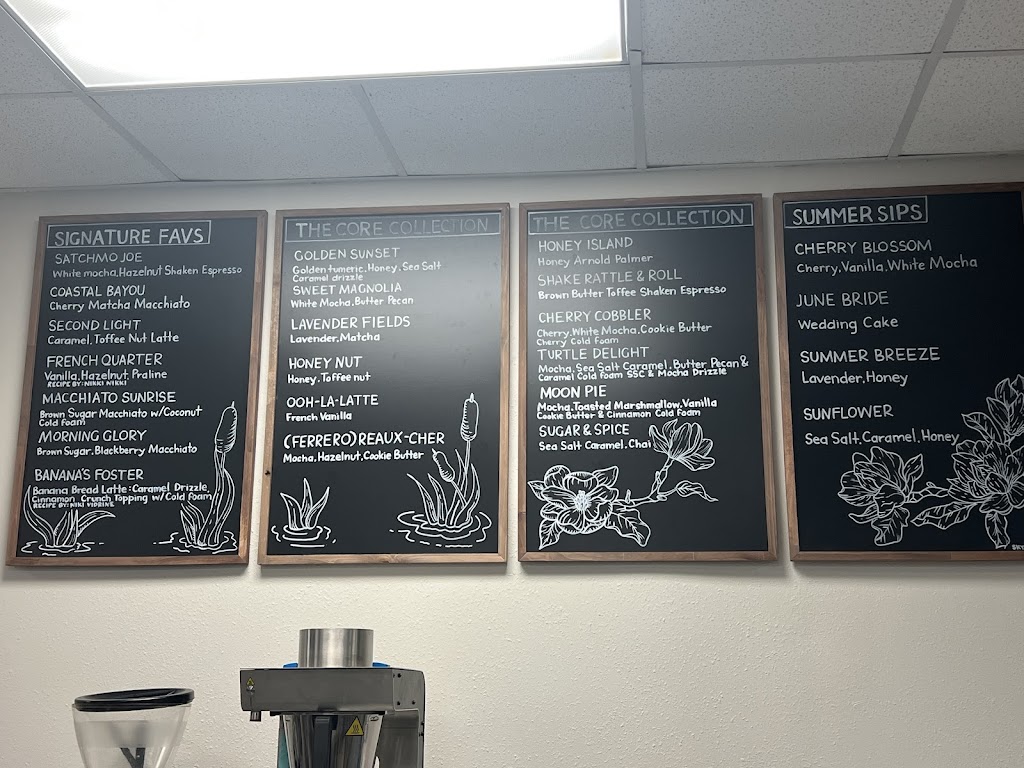 SIGNATURE FAVS
SATCHMO JOE
White mocha, Hazelnut Shaken Espresso
COASTAL BAYOU
Cherry Matcha Macchiato
SECOND LIGHT
Caramel, Toffee Nut Latte
FRENCH QUARTER
Vanilla, Hazelnut, Praline
RECIPE BY: NIKKI NIKKI
MACCHIATO SUNRISE
Brown Sugar Macchiato w/Coconut
Cold Foam
MORNING GLORY
Brown Sugar, Blackberry Macchiato
BANANA'S FOSTER
Banana Bread Latte: Caramel Drizzle,
Cinnamon Crunch Topping w/ Cold Foam
RECIPE BY: NIKI VIDRINE
THE CORE COLLECTION
GOLDEN SUNSET
Golden tumeric, Honey, Sea Salt
Caramel drizzle
SWEET MAGNOLIA
White Mocha, Butter Pecan
LAVENDER FIELDS
Lavender, Matcha
HONEY NUT
Honey, Toffee nut
OOH-LA-LATTE
French Vanilla
(FERRERO) REAUX-CHER
Mocha, Hazelnut, Cookie Butter
THE CORE COLLECTION
HONEY ISLAND
Honey Arnold Palmer
SHAKE RATTLE & ROLL
Brown Butter Toffee Shaken Espresso
CHERRY COBBLER
Cherry, White Mocha, Cookie Butter
Cherry Cold foam
TURTLE DELIGHT
Mocha, Sea Salt Caramel, Butter Pecan &
Caramel Cold Foam SSC & Mocha Drizzle
MOON PIE
Mocha, Toasted Marshmallow, Vanilla
Cookie Butter & Cinnamon Cold Foam
SUGAR & SPICE
Sea Salt Caramel, Chai
SUMMER SIPS
CHERRY BLOSSOM
Cherry, Vanilla, White Mocha
JUNE BRIDE
Wedding Cake
SUMMER BREEZE
Lavender, Honey
SUNFLOWER
Sea Salt, Caramel, Honey